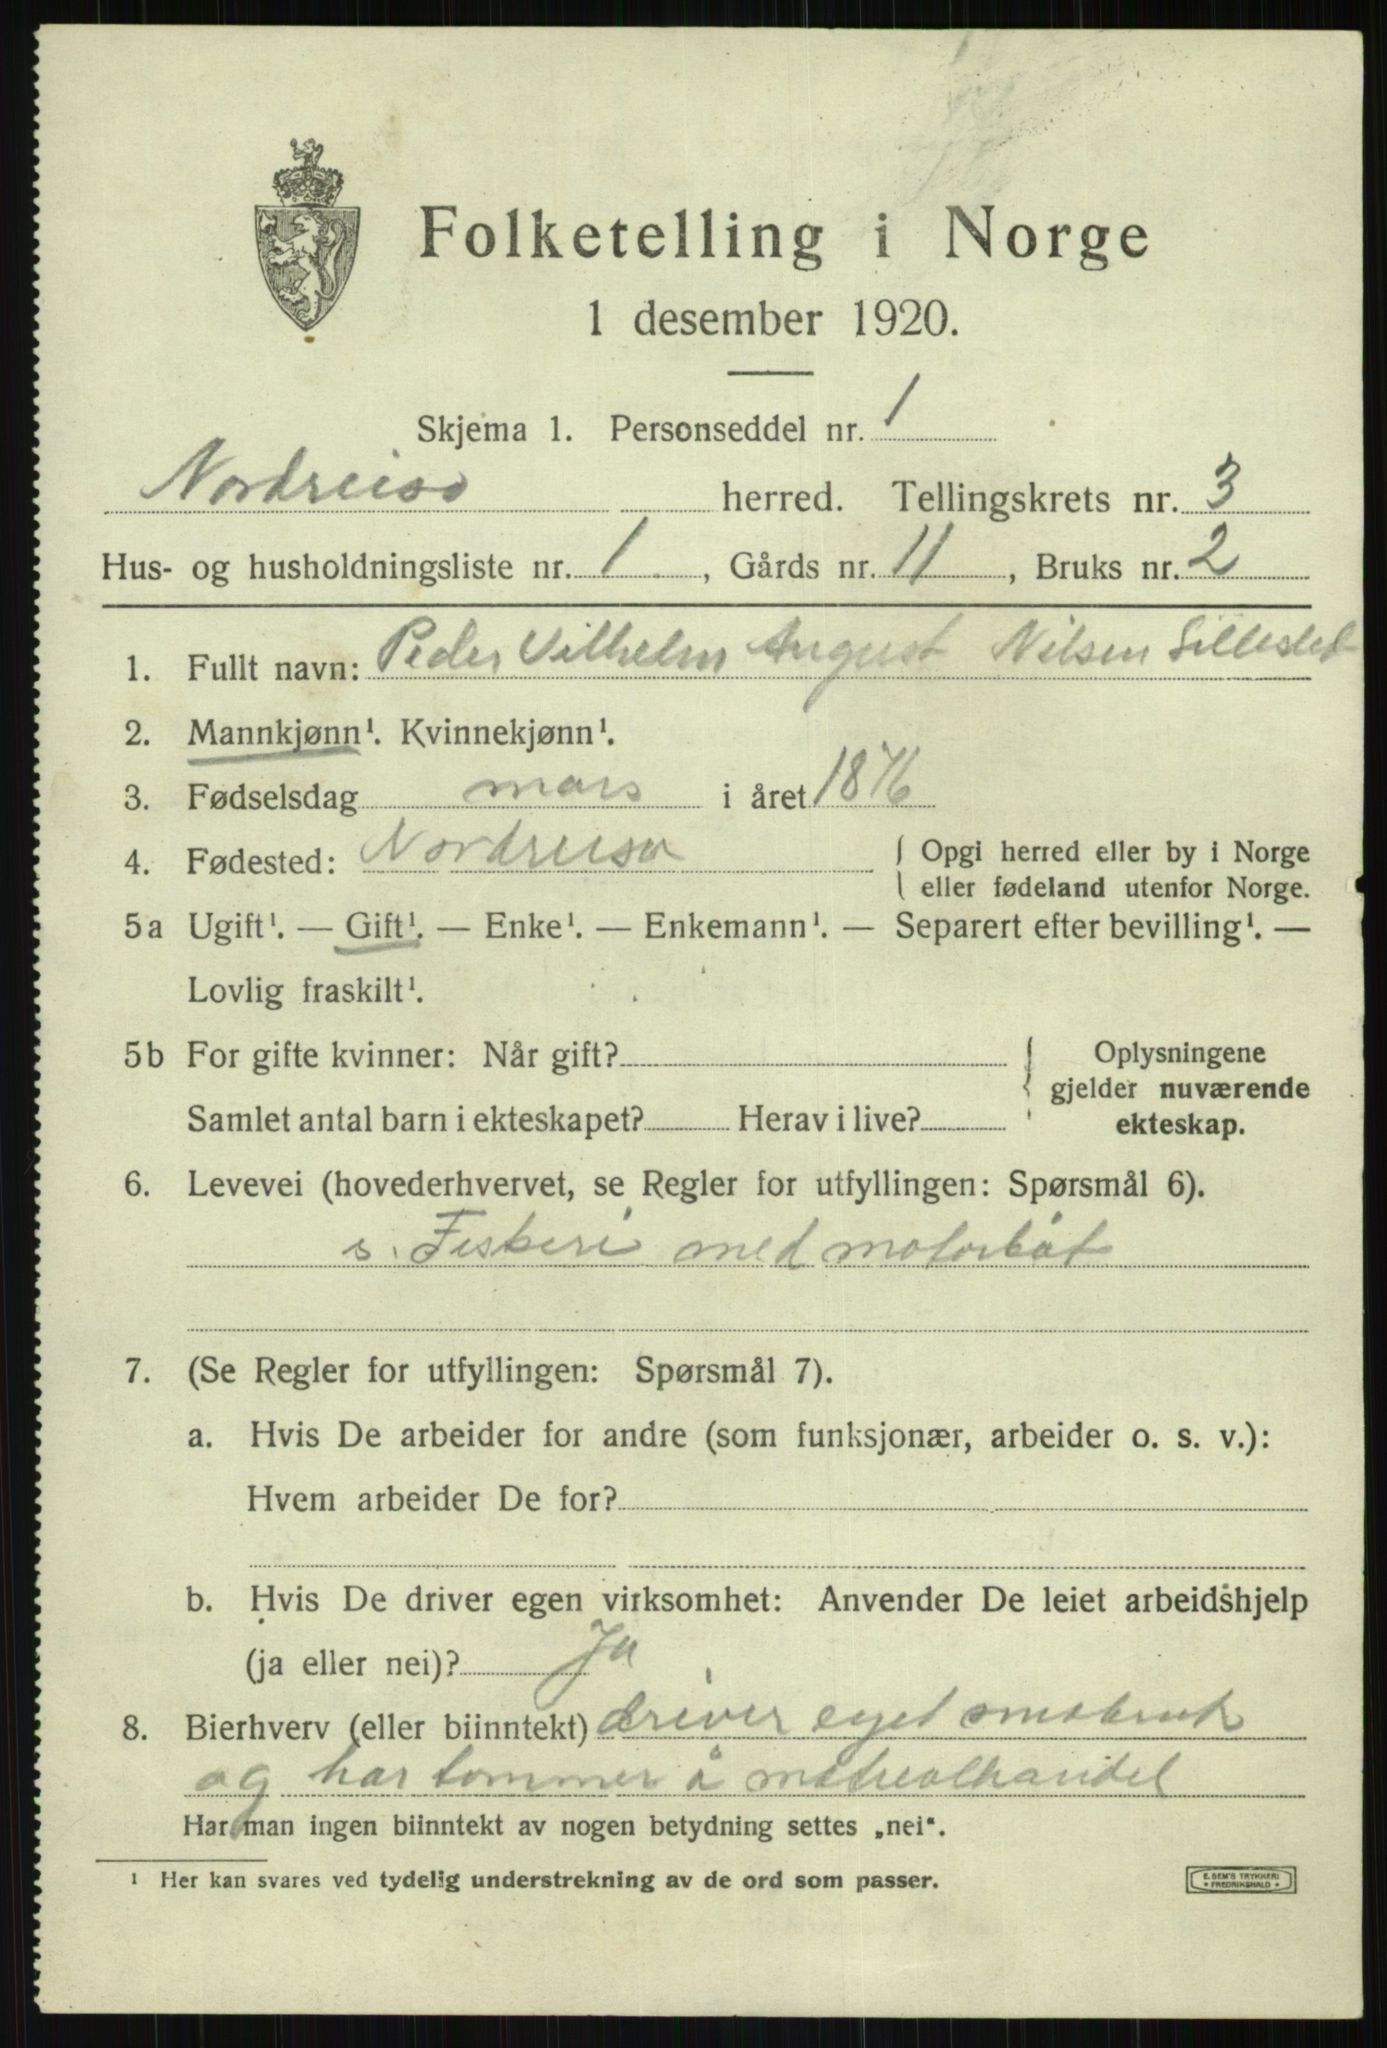 Folketelling i Norge
1 desember 1920.
Skjema 1. Personseddel nr. 1
Nordreisa herred. Tellingskrets nr. 3
Hus- og husholdningsliste nr. 1, Gårds nr. 11, Bruks nr. 2
1. Fullt navn: Peder Vilhelm August Nilsen
2. Mannkjønn¹. Kvinnekjønn¹.
3. Fødselsdag mars i året 1876
4. Fødested: Nordreisa { Opgi herred eller by i Norge
eller fødeland utenfor Norge.
5a Ugift¹. — Gift¹. — Enke¹. — Enkemann¹. — Separert efter bevilling¹. —
Lovlig fraskilt¹.
5b For gifte kvinner: Når gift? { Oplysningene
gjelder nuværende
Samlet antal barn i ekteskapet? Herav i live? ekteskap.
6. Levevei (hovederhvervet, se Regler for utfyllingen: Spørsmål 6).
s. Fiskeri med motorbåt
7. (Se Regler for utfyllingen: Spørsmål 7).
a. Hvis De arbeider for andre (som funksjonær, arbeider o. s. v.):
Hvem arbeider De for?
b. Hvis De driver egen virksomhet: Anvender De leiet arbeidshjelp
(ja eller nei)? Ja
8. Bierhverv (eller biinntekt) driver eget småbruk
og har tømmer å matrealhandel
Har man ingen biinntekt av nogen betydning settes „nei“.
¹ Her kan svares ved tydelig understrekning av de ord som passer.
E. SEM'S TRYKKERI
FREDRIKSHALD